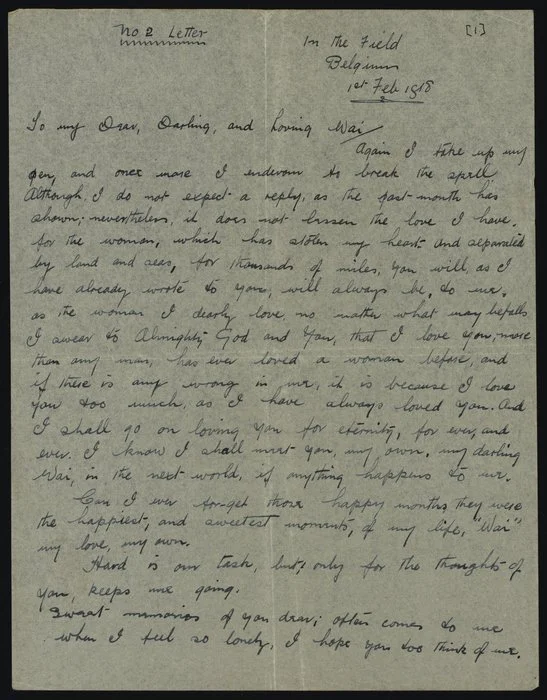 No 2 Letter
[1]
In the Field
Belgium
1st Feb 1918
To my Dear, Darling, and Loving Wai
Again I take up my
pen, and once more I endevour to break the spell
Although, I do not expect a reply, as the past month has
shown; nevertheless, it does not lessen the love I have.
for the woman, which has stolen my heart and separated
by land and seas, for thousands of miles, you will, as I
have already wrote to you, will always be, to me,
as the woman I dearly love, no matter what may befalls
I swear to Almighty God and You, that I love you, more
than any man, has ever loved a woman before, and
if there is any wrong in me, it is because I love
you too much, as I have always loved you. And
I shall go on loving you for eternity, for ever, and
ever. I know I shall meet you, my own, my darling
Wai, in the next world, if anything happens to me.
Can I ever for-get those happy months they were
the happiest, and sweetest moments, of my life, "Wai"
my love, my own.
Hard is our task, but; only for the thoughts of
you, keeps me going.
Sweet memories of you dear; often comes to me
when I feel so lonely, I hope you too think of me.